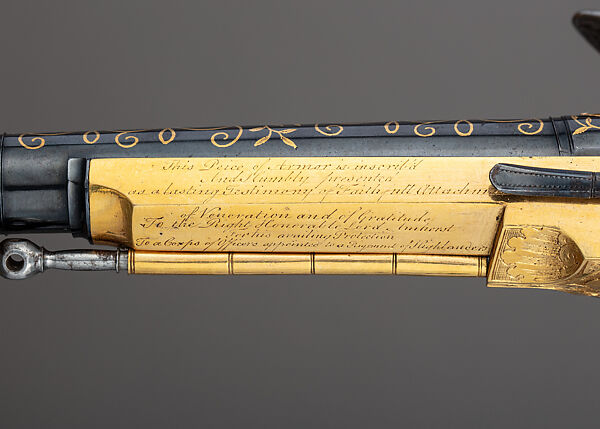 This Peice of Armor is inscrib'd
And Humbly presented
as a lasting Testimony of Faithfull Attachm
of Veneration and of Gratitude
To the Right Honorable Lord Amherst
for his availing Protection
To a Corps of Officers appointed to a Regiment of Highlanders